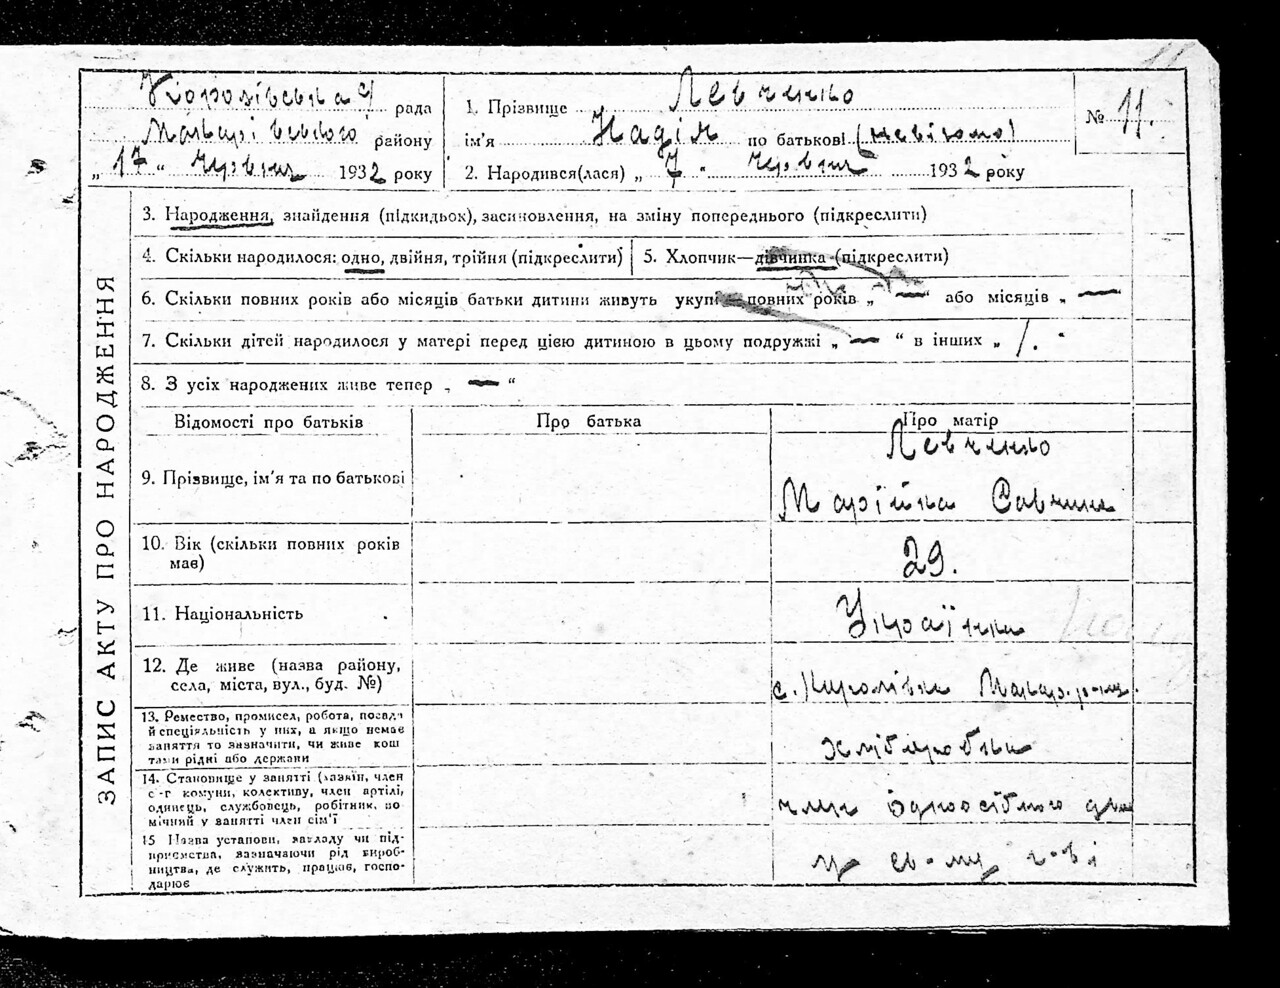 Королівська с/ рада
Макарівського району
„ 17 “ червня 1932 року
1. Прізвище Левченко
ім'я Надія по батькові (невідомо)
2. Народився(лася) „ 7 “ червня 1932 року
№ 11.
ЗАПИС АКТУ ПРО НАРОДЖЕННЯ
3. Народження, знайдення (підкидьок), засиновлення, на зміну попереднього (підкреслити)
4. Скільки народилося: одно, двійня, трійня (підкреслити)
5. Хлопчик—дівчинка (підкреслити)
6. Скільки повних років або місяців батьки дитини живуть укупі повних років „ — “ або місяців „ — “
7. Скільки дітей народилося у матері перед цією дитиною в цьому подружжі „ — “ в інших „ 1. “
8. З усіх народжених живе тепер „ — “
Відомості про батьків
Про батька
Про матір
9. Прізвище, ім'я та по батькові
Левченко
Марійка Савчина
10. Вік (скільки повних років
має)
29.
11. Національність
Українка
12. Де живе (назва району,
села, міста, вул., буд. №)
с. Королівка Макар. р-ну.
13. Ремество, промисел, робота, посада
й спеціяльність у них, а якщо немає
заняття то зазначити, чи живе кош
тами рідні або держави
хліборобка
14. Становище у занятті (хазяїн, член
с-г комуни, колективу, член артілі,
одинець, службовець, робітник, по
мічний у занятті член сім'ї
член одноосібного
15 Назва установи, закладу чи під-
приємства, зазначаючи рід вироб-
ництва, де служить, працює, госпо-
дарює
у св-му г-ві